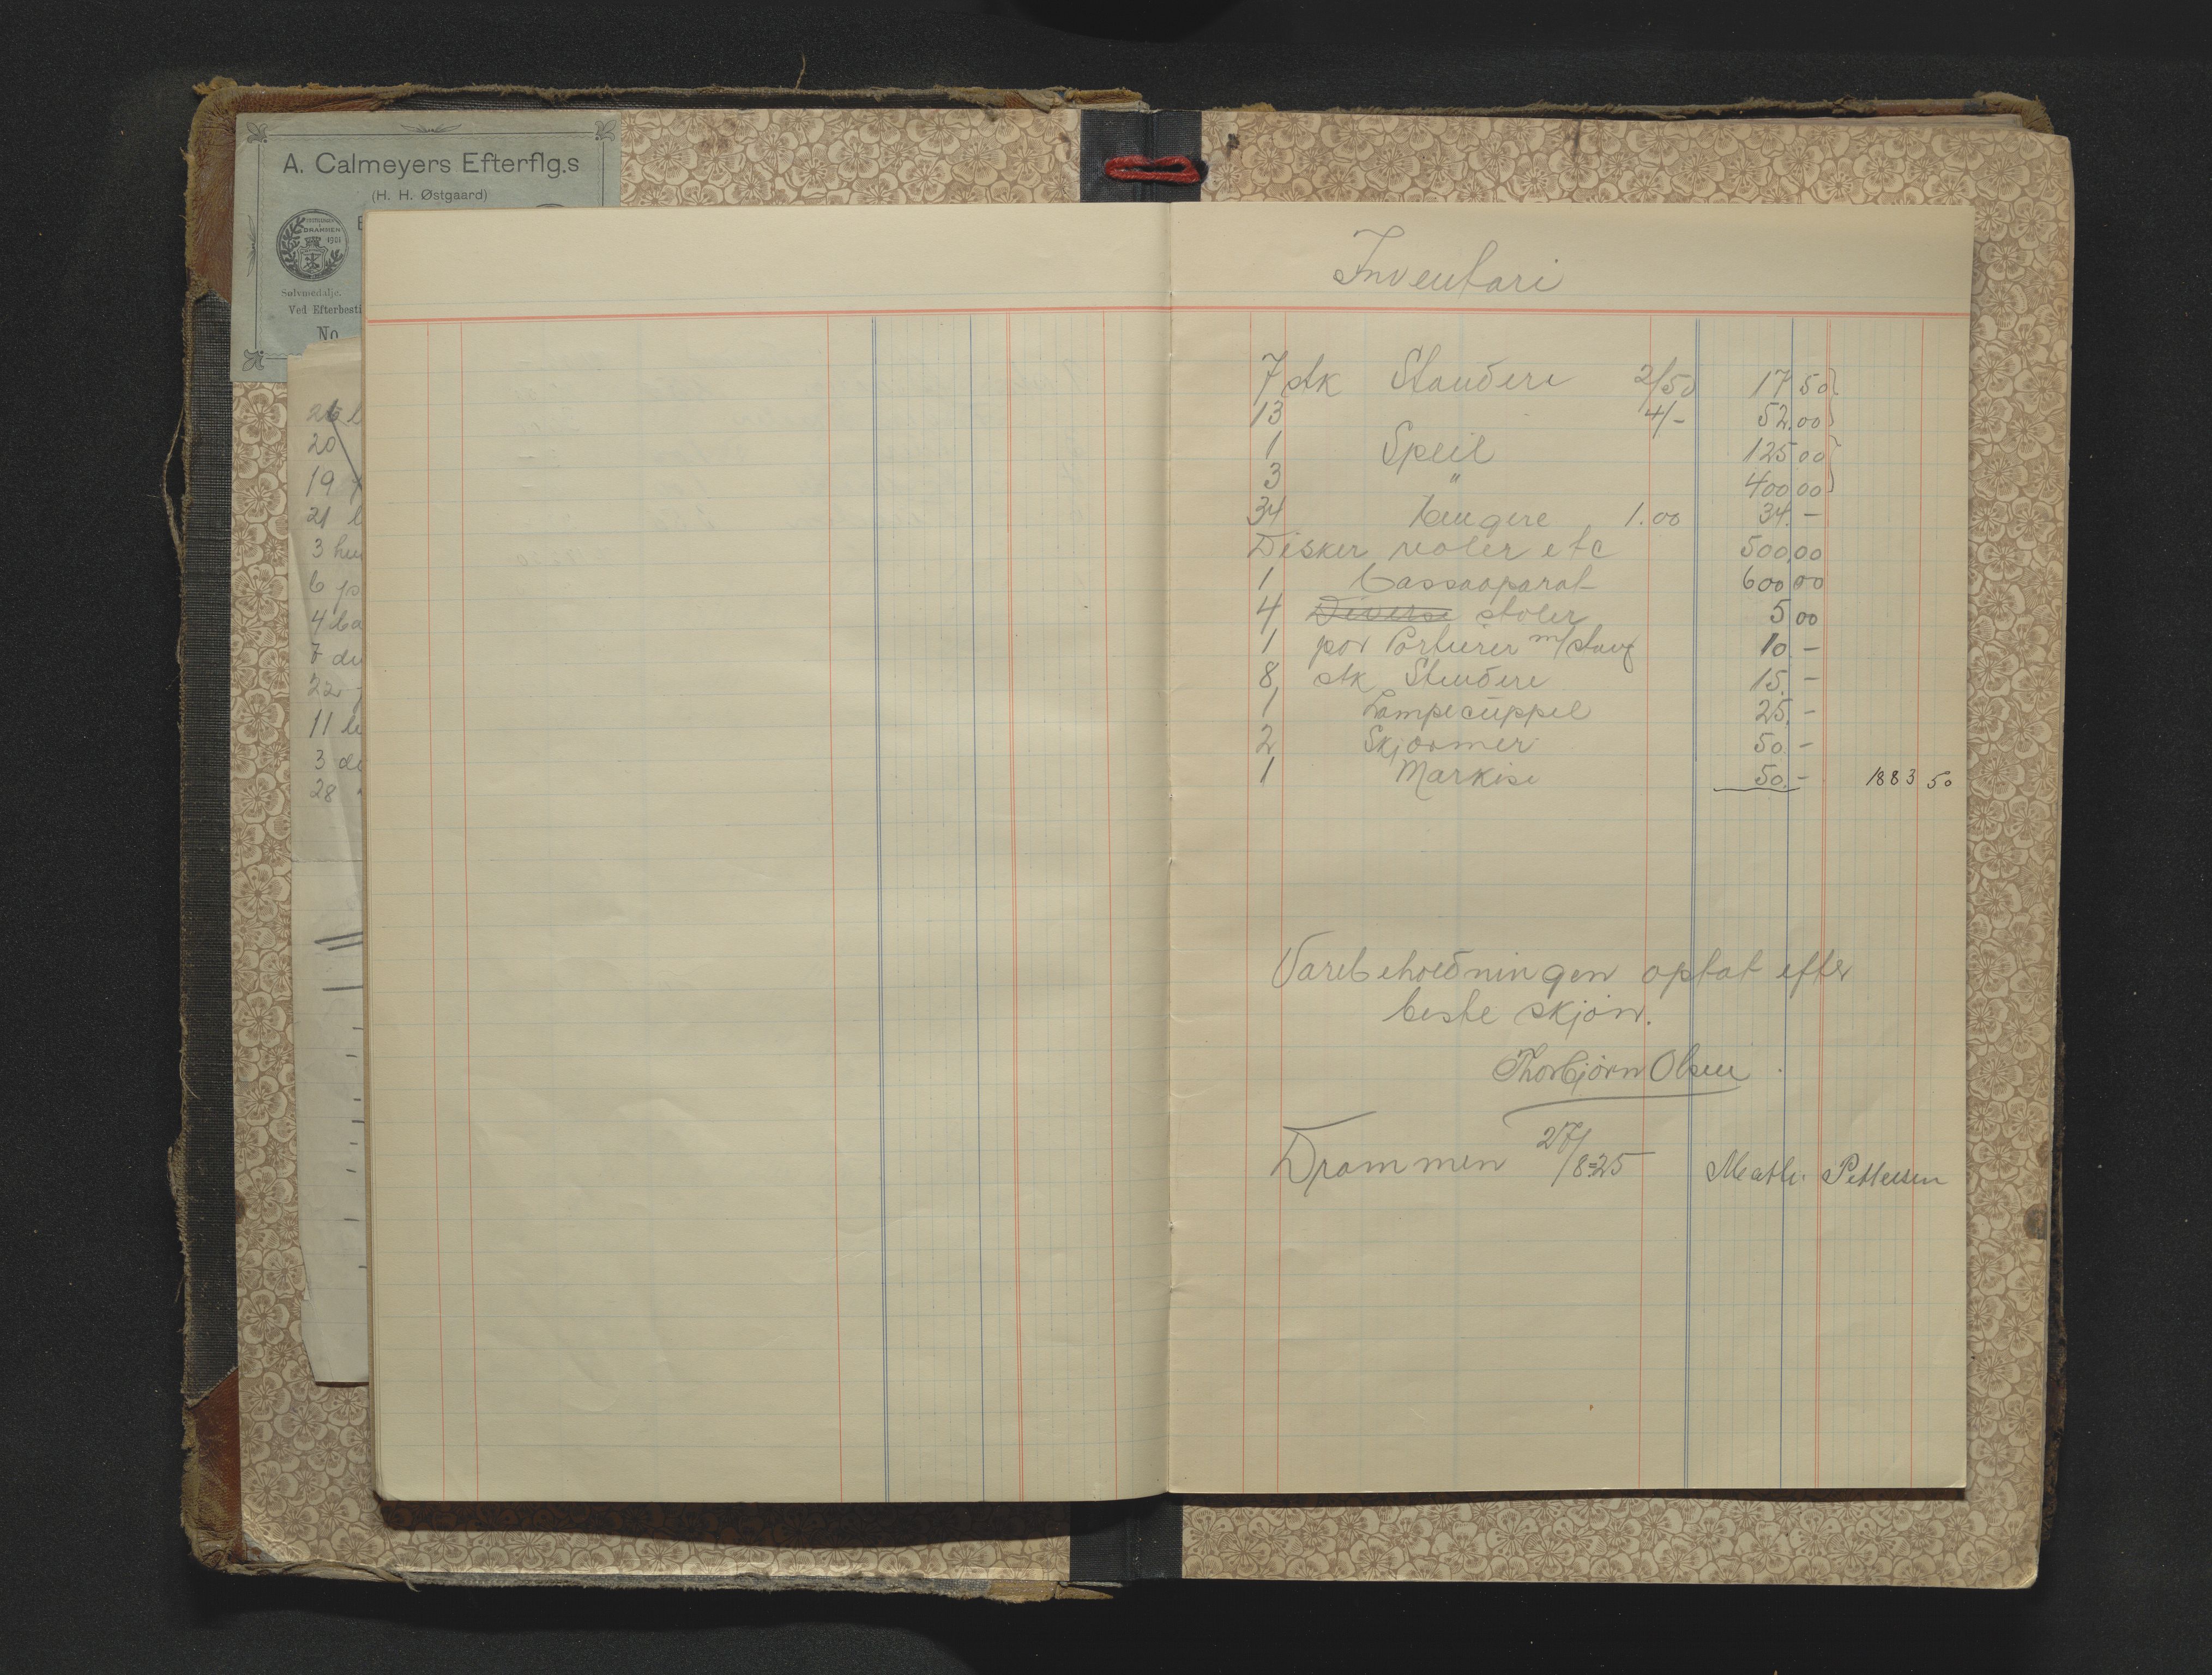 A. Calmeyers Efterflg.s
(H. H. Østgaard)
FESTSKUET DRAMMEN 1901
Sølvmedalje.
Ved Efterbesti
No
26
20
19
21
3
6
4
7
22
11
3
28
Inventari
7 stk Standere 2/50 17 50
13 4/- 52.00
1 Speil 125 00
3 " 400 00
34 hengere 1.00 34.-
Disker reoler etc 500,00
1 Cassaaparat 600 00
4 Diverse stoler 5 00
1 par Portierer m/stang 10 -
8 stk Stendere 15. -
1 Lampecuppel 25. -
2 Skjærmer 50. -
1 Markise 50. - 1883 50
Varebeholdningen optat efter
beste skjøn.
Thorbjørn Olsen
Drammen 27/8-25 Mathi. Pettersen